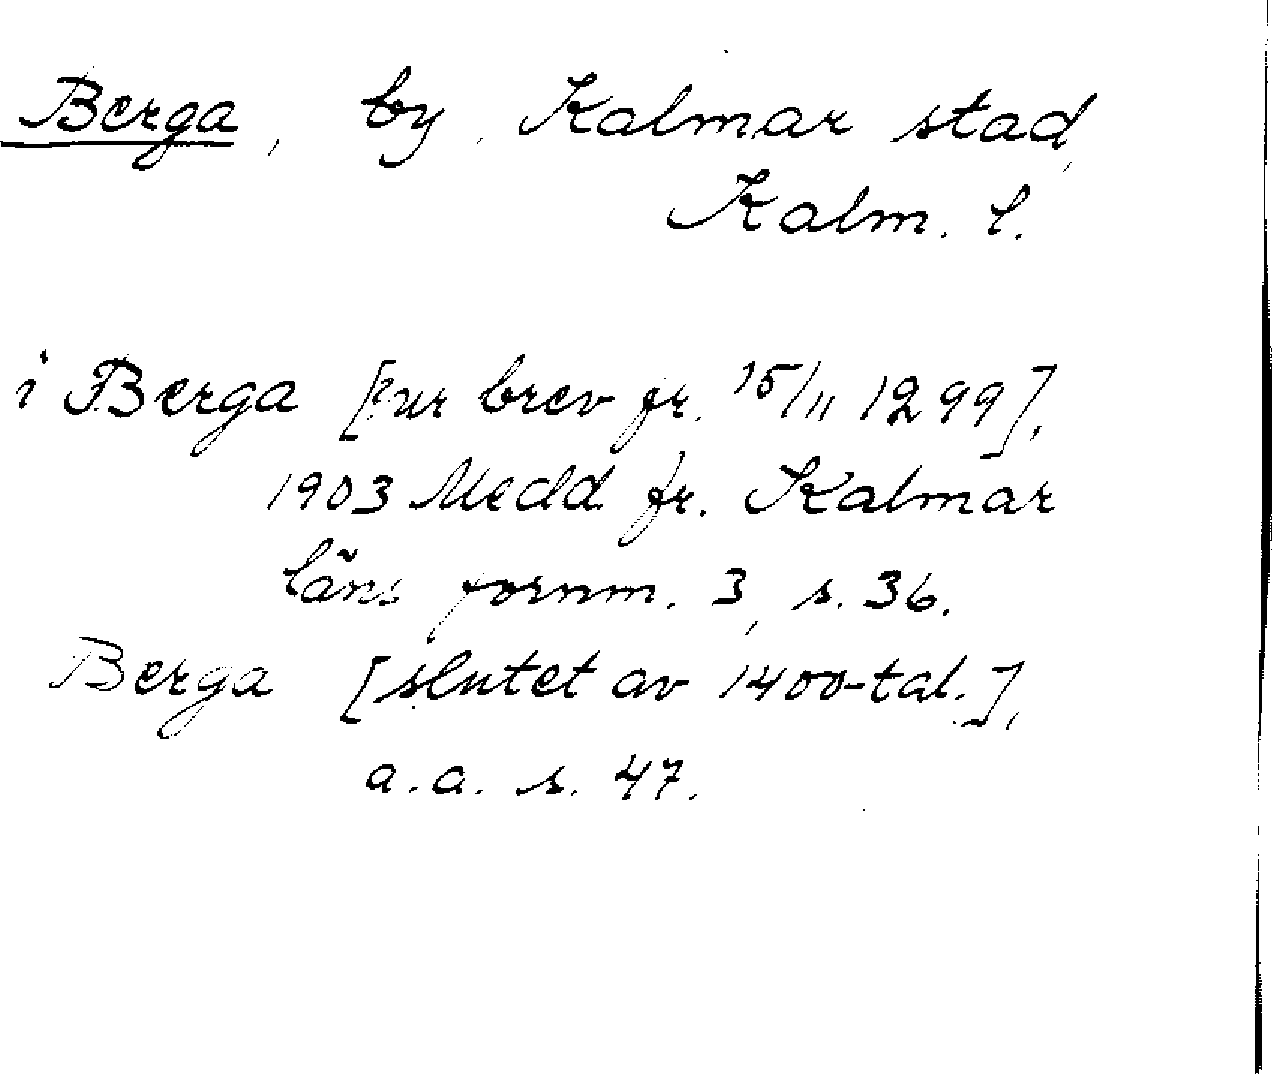 Berga, by, Kalmar stad,
Kalm. l.
i Berga [ur brev fr. 15/11 1299],
1903 Medd fr. Kalmar
läns fornm. 3, s. 36.
Berga [slutet av 1400-tal.],
a.a. s. 47.